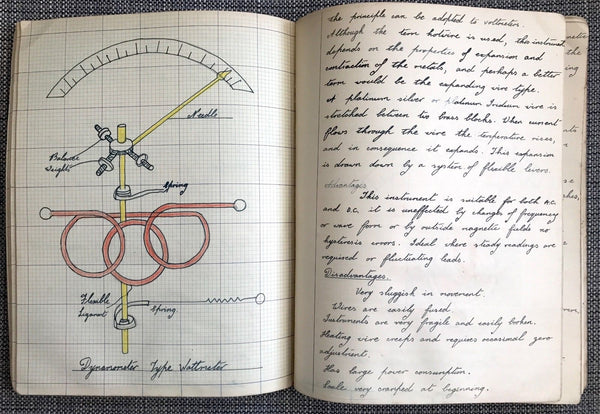 Needle
Balance
Weights
Spring
Flexible
Ligament
Spring.
Dynamometer Type Wattmeter
the principle can be adopted to voltmeters.
Although the term hotwire is used, this instrument
depends on the properties of expansion and
contraction of the metals, and perhaps a better
term would be the expanding wire type.
A platinum silver or Platinum Iridium wire is
stretched between two brass blocks. When current
flows through the wire the temperature rises,
and in consequence it expands. This expansion
is drawn down by a system of flexible levers.
Advantages
This instrument is suitable for both A.C.
and D.C. it is uneffected by changes of frequency
or wave form or by outside magnetic fields no
hysterisis errors. Ideal where steady readings are
required or fluctuating leads.
Disadvantages.
Very sluggish in movement.
Wires are easily fused.
Instruments are very fragile and easily broken.
Heating wire creeps and requires occasional zero
adjustment.
Has large power consumption.
Scale very cramped at beginning.